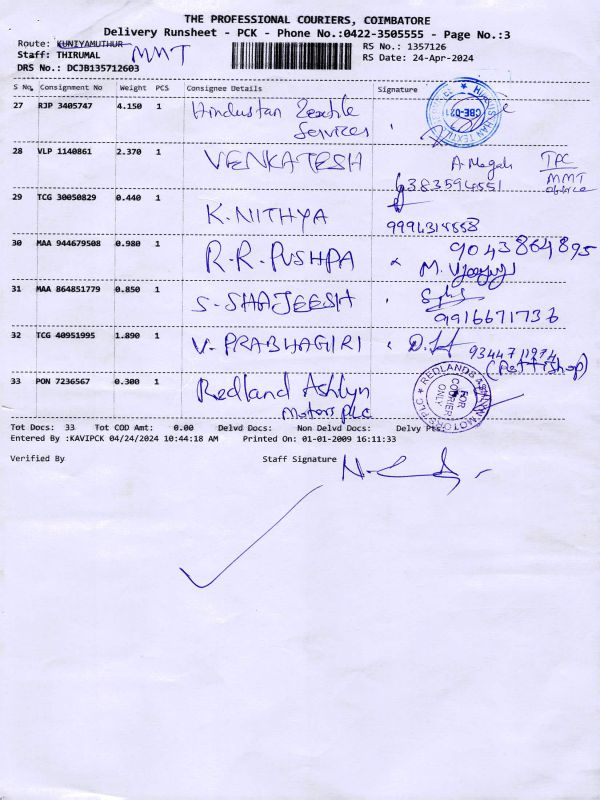 THE PROFESSIONAL COURIERS, COIMBATORE
Delivery Runsheet - PCK - Phone No.:0422-3505555 - Page No.:3
Route: KUNIYAMUTHUR MMT RS No.: 1357126
Staff: THIRUMAL RS Date: 24-Apr-2024
DRS No.: DCJB135712603
S No. Consignment No Weight PCS Consignee Details Signature
27 RJP 3405747 4.150 1 Hindustan Textile
Services
HINDUSTAN TEXTILE CBE-021
28 VLP 1140861 2.370 1 VENKATESH
6383594551
TPC
MMT
office
29 TCG 30050829 0.440 1 K. NITHYA
9994314558
30 MAA 944679508 0.980 1 R. R. PUSHPA 9043864895
31 MAA 864851779 0.850 1 S. SHAJEESH
9916671736
32 TCG 40951995 1.890 1 V. PRABHAGIRI
33 PON 7236567 0.300 1 Redland Ashlyn
Motors PLC
REDLANDS ASHLYN MOTORS PLC
FOR COURIER ONLY
Tot Docs: 33 Tot COD Amt: 0.00 Delvd Docs: Non Delvd Docs: Delvy Pts:
Entered By :KAVIPCK 04/24/2024 10:44:18 AM Printed On: 01-01-2009 16:11:33
Verified By Staff Signature